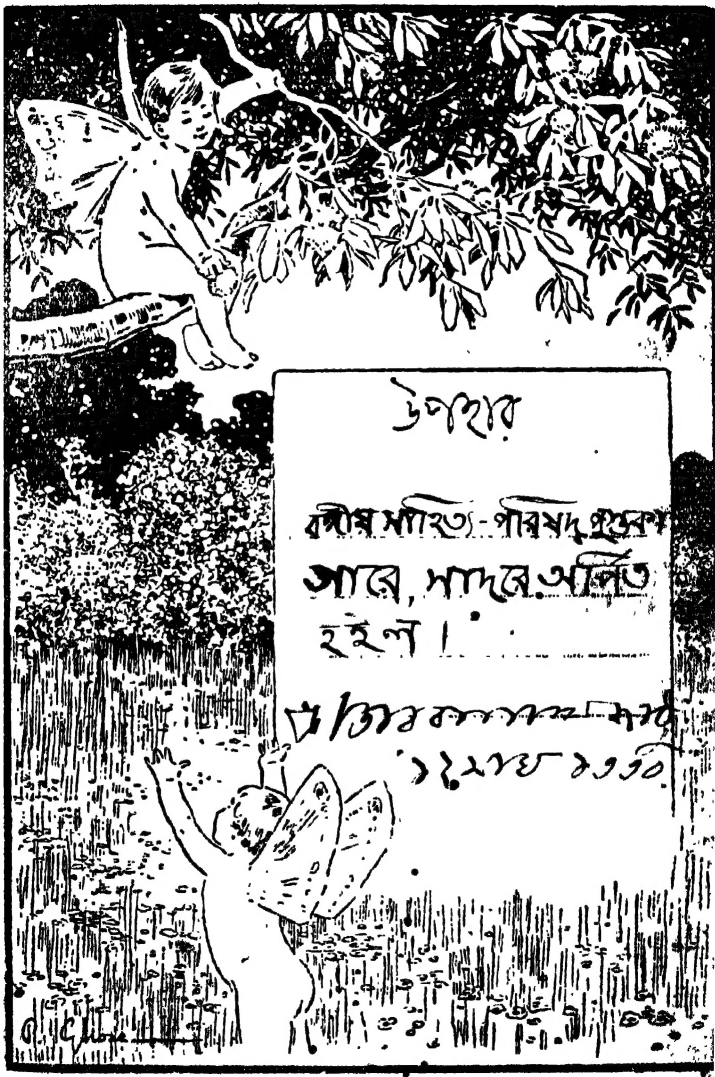 উপহার
বঙ্গীয় সাহিত্য-পরিষদ্ পুস্তকা
গারে, সাদরে অর্পিত
হইল।
শ্রী
১২ মাঘ ১৩৩০